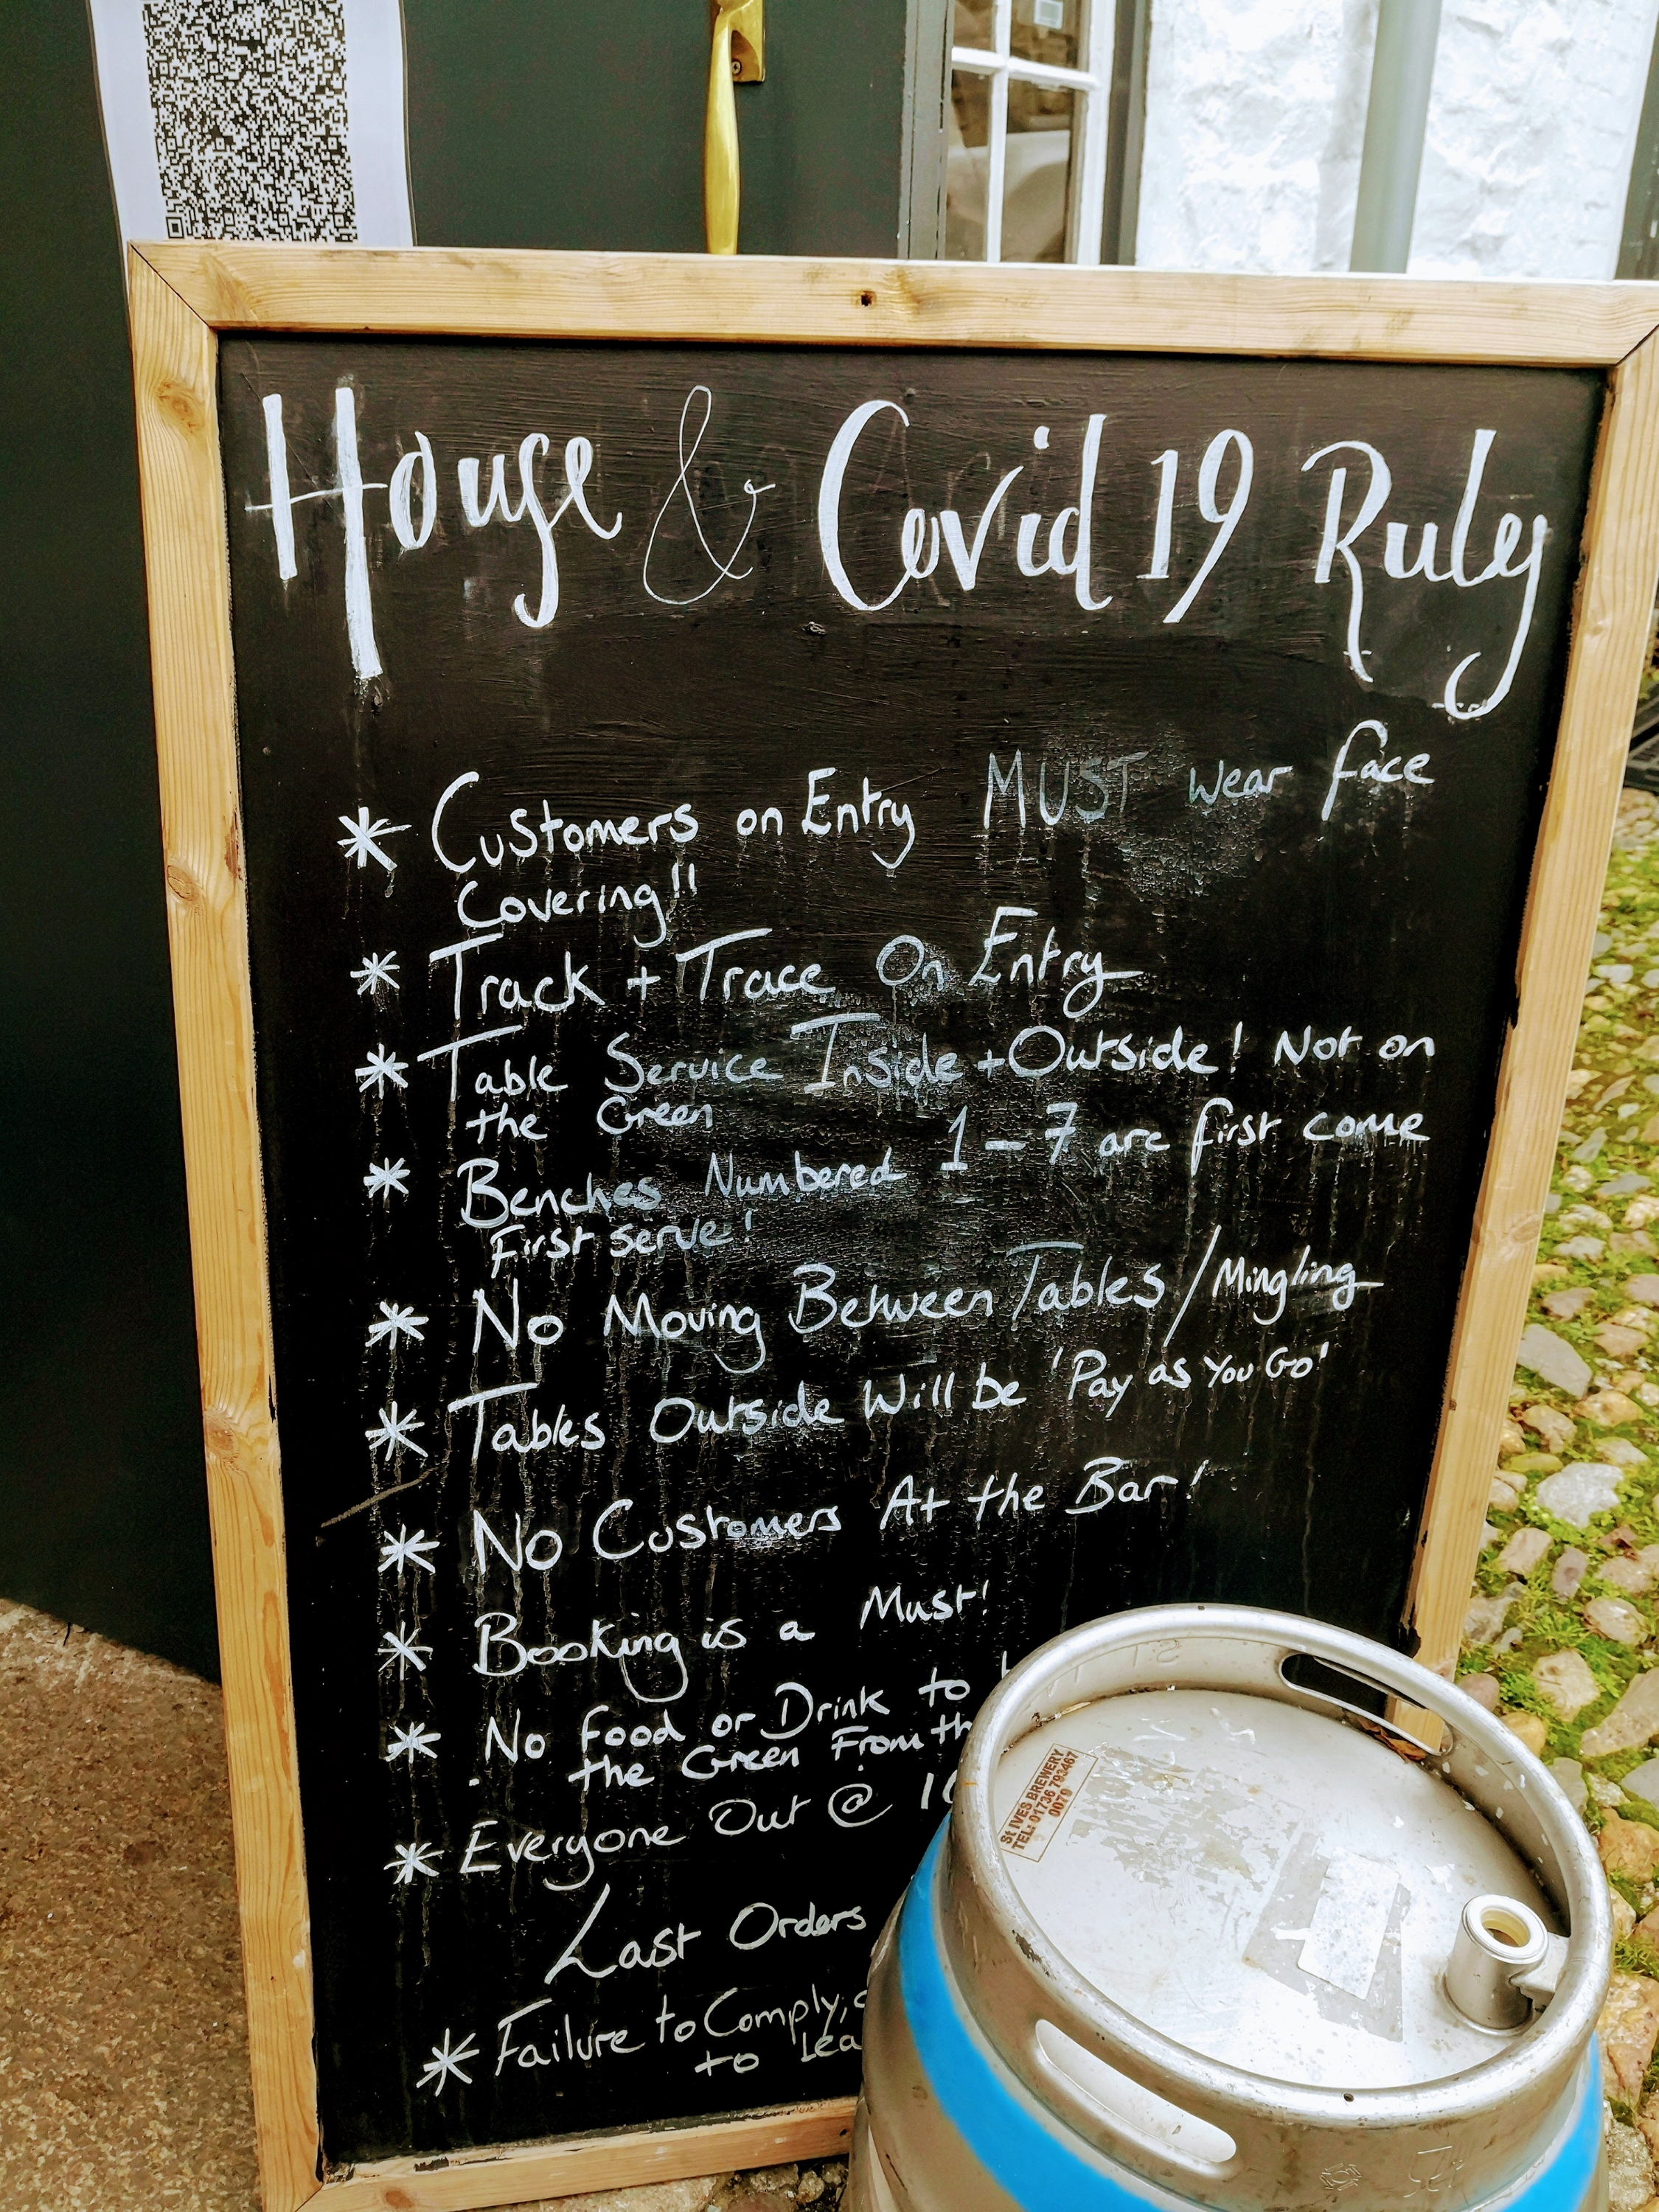 House & Covid 19 Rules
* Customers on Entry MUST wear face
Covering!!
* Track + Trace On Entry
* Table Service Inside + Outside! Not on
the Green
* Benches Numbered 1 - 7 are first come
First serve!
* No Moving Between Tables / Mingling
* Tables Outside Will be 'Pay as You Go'
* No Customers At the Bar!
* Booking is a Must!
* No food or Drink to
the Green From
* Everyone Out @
Last Orders
* Failure to Comply,
to
St IVES BREWERY
TEL: 01736 793467
0079